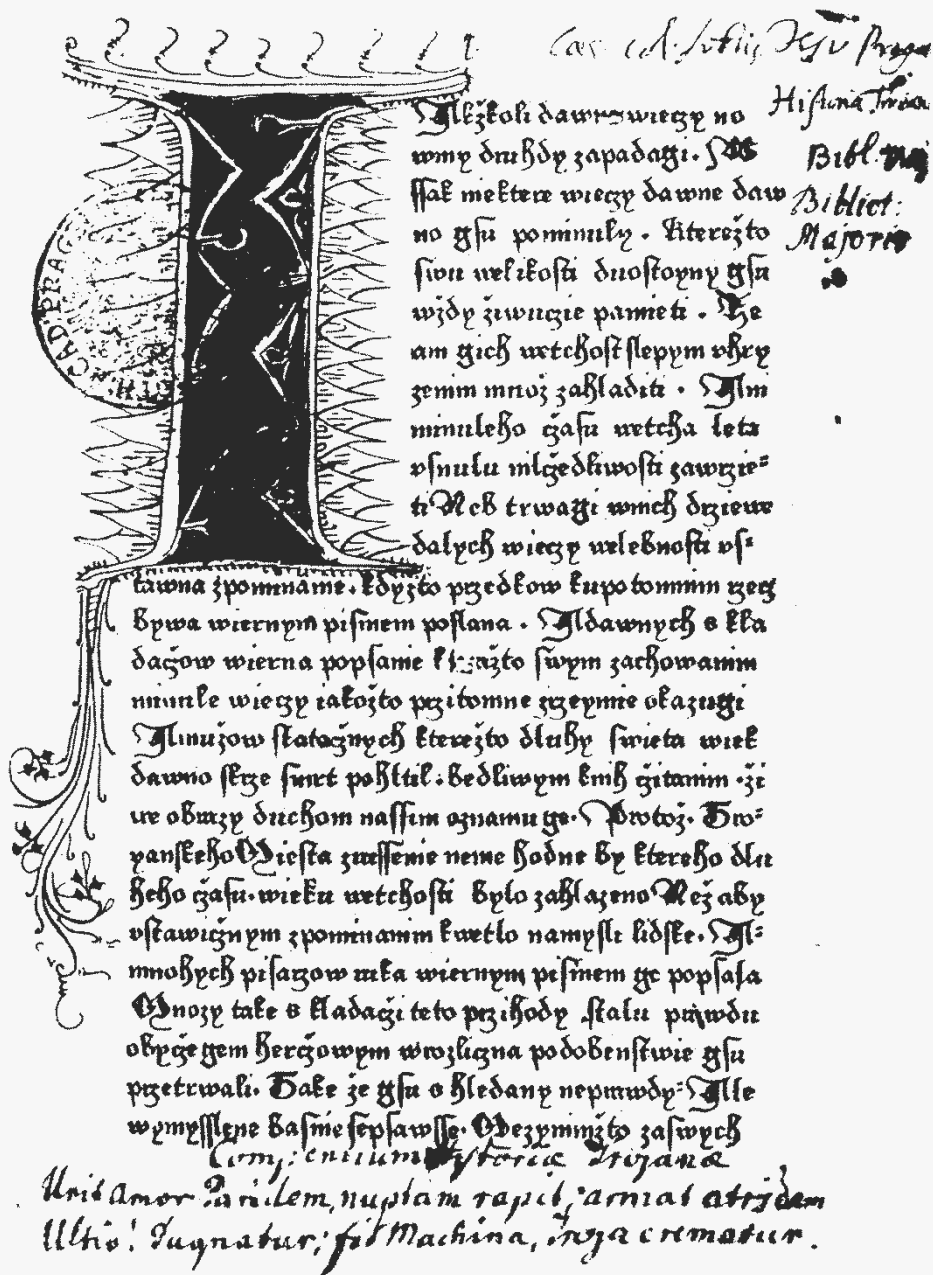 Historia Troia
Bibl. maj
Biblioth:
Majoris
Ačžkoli dawne wieczy no
wmy druhdy zapadagi. A
ssak niektere wieczy dawne daw
no gsu pominuly. Kterežto
swu welikosti duostoyny gsu
wždy žiwuczie pamieti. Že
am gich wetchost slepym vhry
zenim množ zahladiti. Ani
minuleho čzasu wetcha leta
vsnulu mlčzedliwosti zawrzie=
ti Neb trwagi wnich drziewe
dalych wieczy welebnosti vs=
tawna zpominanie. kdyžto przedkow kupotomnim rzecz
bywa wiernym pismem poslana. A dawnych s kla
dačzow wierna popsanie swym zachowanim
minule wieczy iakožto przitomne zrzeymie okazugi
A mužow statečznych kterežto dluhy swieta wiek
dawno skrze smrt pohltil. bedliwym knih čzitanim. ži
we obrazy duchom nassim oznamuge. Protož. Tro=
yanskeho Miesta zrussenie nenie hodne by ktereho dlu
heho čzasu. wieku wetchosti bylo zahlazeno Než aby
vstawičznym zpominanim kwetlo namysli lidske. A=
mnohych pisarzow ruka wiernym pismem ge popsala
Mnozy take s kladačzi teto przihody stalu prawdu
obyčzegem herčzowym wrozličzna podobenstwie gsu
przetrwali. Take že gsu s hledany neprawdy= Ale
wymysslene basnie sepsawsse. Mezyminžto zaswych
Compendium Hystoriae Trojanae
Urit Amor Paridem, nuptam rapit, armat atridem
Ultio! Pugnatur, fit Machina, Troja crematur.